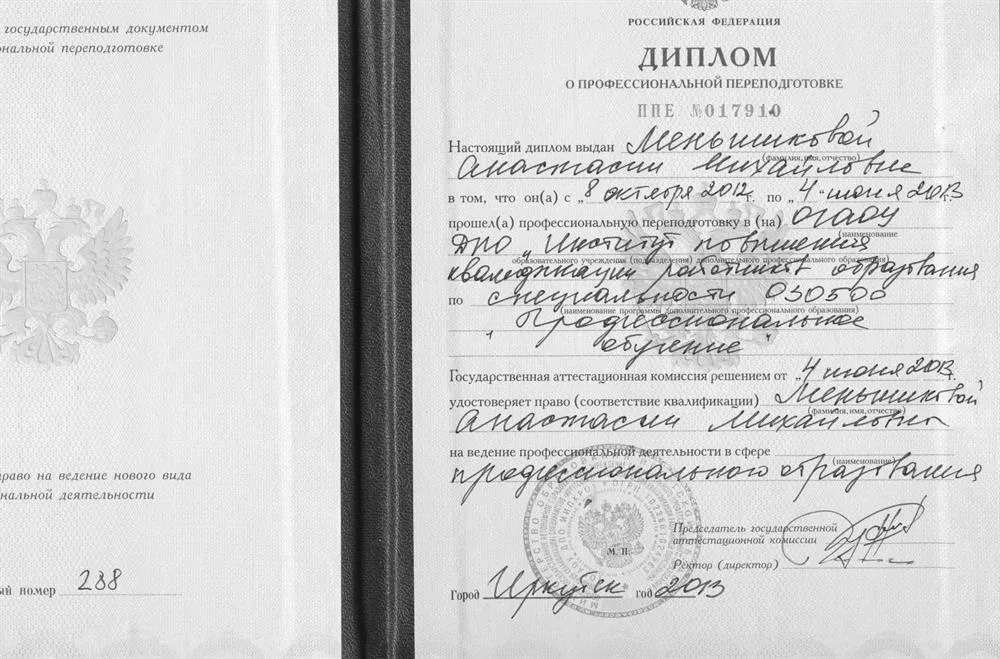 государственным документом
нальной переподготовке
раво на ведение нового вида
нальной деятельности
ый номер 288
РОССИЙСКАЯ ФЕДЕРАЦИЯ
ДИПЛОМ
О ПРОФЕССИОНАЛЬНОЙ ПЕРЕПОДГОТОВКЕ
ППЕ №017910
Настоящий диплом выдан Меньшиковой
(фамилия, имя, отчество)
Анастасии Михайловне
в том, что он(а) с „8 октября 2012г. по „4" июня 2013г.
прошел(а) профессиональную переподготовку в (на) ОГАОУ
(наименование
ДПО „Институт повышения
образовательного учреждения (подразделения) дополнительного профессионального образования)
квалификации работников образования
по специальности 030500
(наименование программы дополнительного профессионального образования)
„Профессиональное
обучение"
Государственная аттестационная комиссия решением от „4 июня 2013г.
удостоверяет право (соответствие квалификации) Меньшиковой
(фамилия, имя, отчество)
Анастасии Михайловны
на ведение профессиональной деятельности в сфере
(наименование)
профессионального образования
Председатель государственной
аттестационной комиссии
М. П.
Ректор (директор)
Город Иркутск год 2013